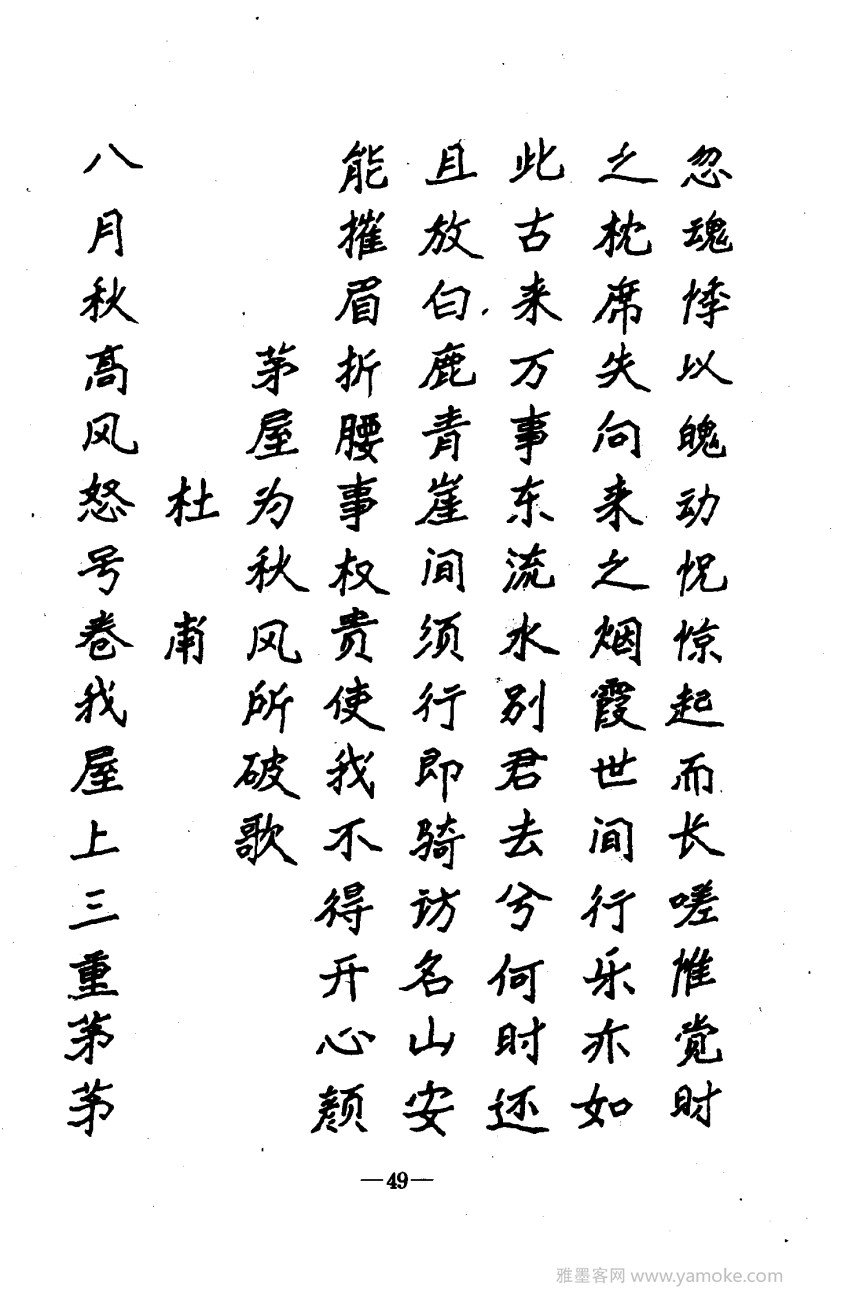 忽魂悸以魄动怳惊起而长嗟惟觉时
之枕席失向来之烟霞世间行乐亦如
此古来万事东流水别君去兮何时还
且放白鹿青崖间须行即骑访名山安
能摧眉折腰事权贵使我不得开心颜
茅屋为秋风所破歌
杜甫
八月秋高风怒号卷我屋上三重茅茅
—49—
雅墨客网 www.yamoke.com